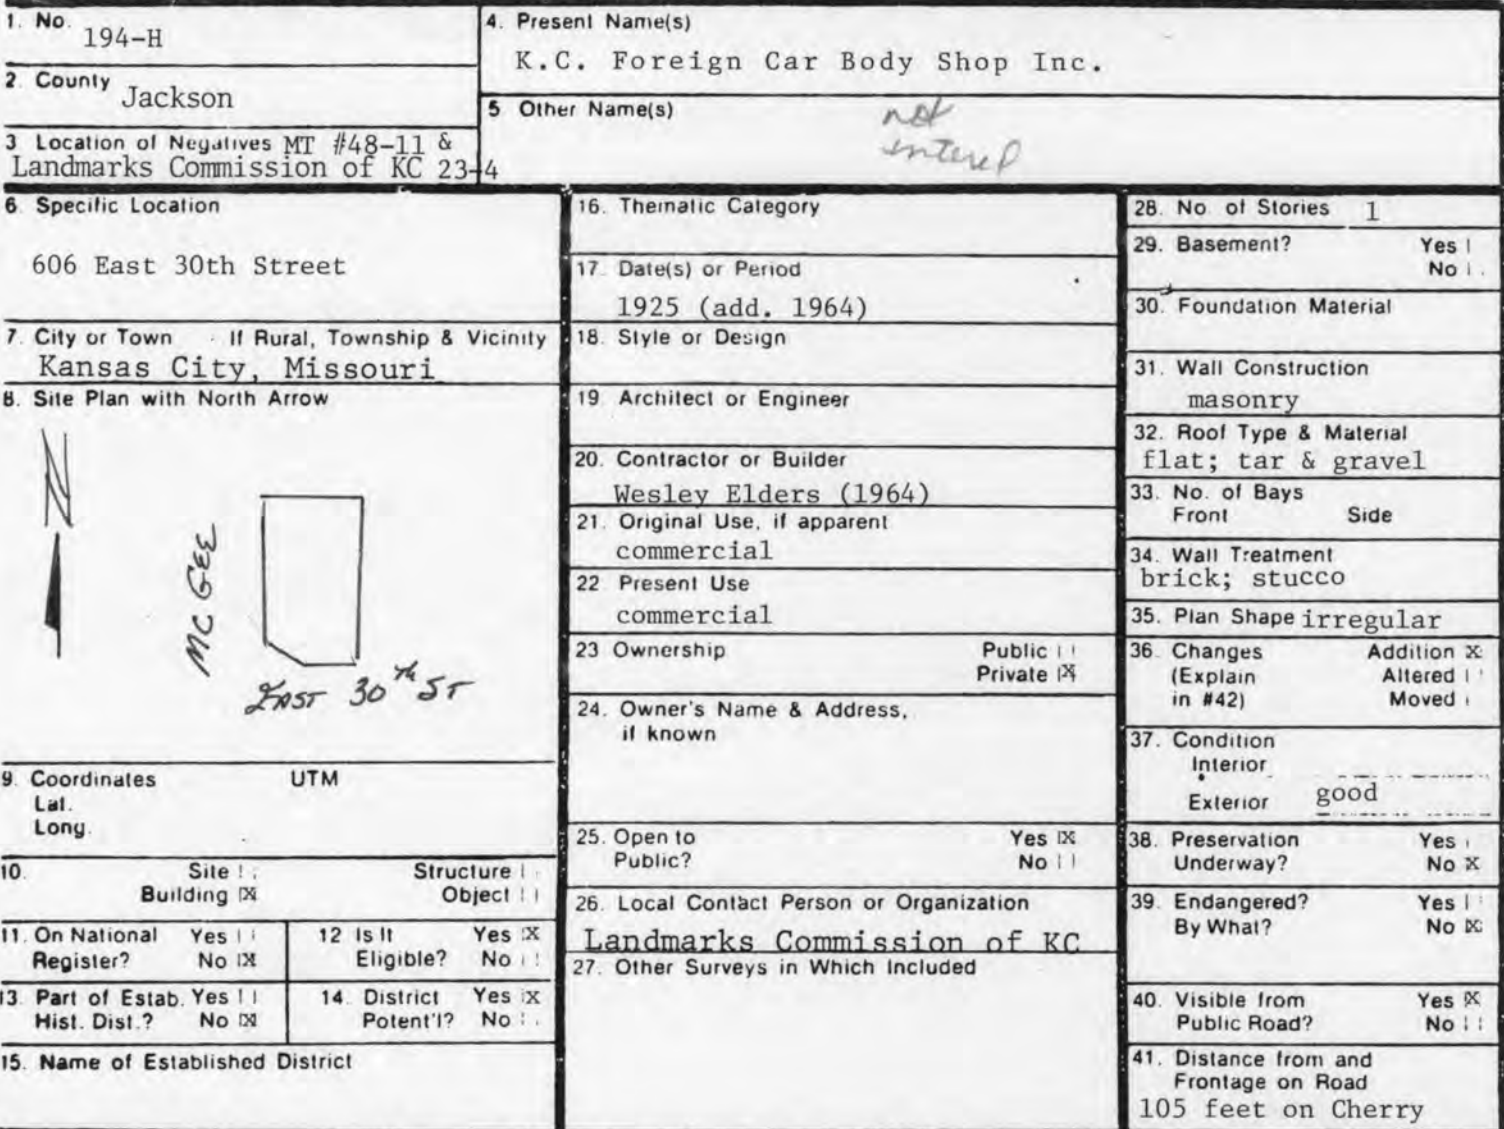 1. No.
194-H
2. County
Jackson
3 Location of Negatives MT #48-11 &
Landmarks Commission of KC 23-4
4. Present Name(s)
K.C. Foreign Car Body Shop Inc.
5 Other Name(s)
not
entered
6. Specific Location
606 East 30th Street
7. City or Town If Rural, Township & Vicinity
Kansas City, Missouri
8. Site Plan with North Arrow
N
MC GEE
EAST 30th ST
9. Coordinates UTM
Lat.
Long.
10. Site Structure
Building X Object
11. On National Yes
Register? No X
12 Is It Yes X
Eligible? No
13. Part of Estab. Yes
Hist. Dist.? No X
14. District Yes X
Potent'l? No
15. Name of Established District
16. Thematic Category
17. Date(s) or Period
1925 (add. 1964)
18. Style or Design
19. Architect or Engineer
20. Contractor or Builder
Wesley Elders (1964)
21. Original Use, if apparent
commercial
22 Present Use
commercial
23 Ownership Public
Private X
24. Owner's Name & Address,
if known
25. Open to Yes X
Public? No
26. Local Contact Person or Organization
Landmarks Commission of KC
27. Other Surveys in Which Included
28. No. of Stories 1
29. Basement? Yes
No
30. Foundation Material
31. Wall Construction
masonry
32. Roof Type & Material
flat; tar & gravel
33. No. of Bays
Front Side
34. Wall Treatment
brick; stucco
35. Plan Shape irregular
36. Changes Addition X
(Explain Altered
in #42) Moved
37. Condition
Interior
Exterior good
38. Preservation Yes
Underway? No X
39. Endangered? Yes
By What? No X
40. Visible from Yes X
Public Road? No
41. Distance from and
Frontage on Road
105 feet on Cherry